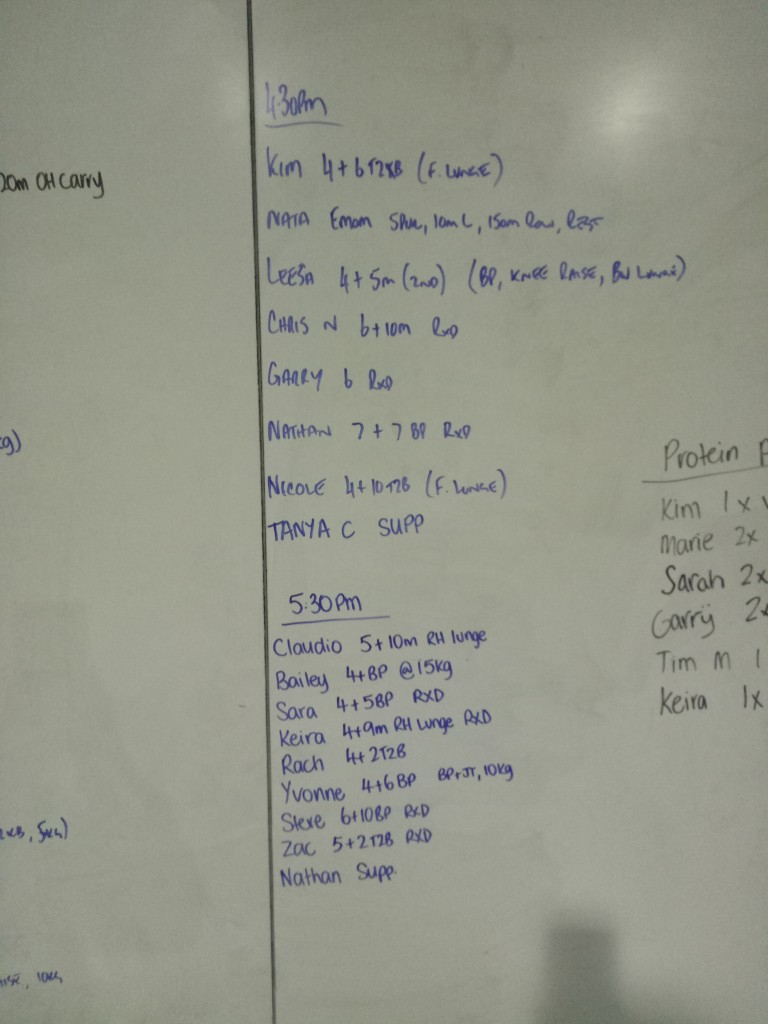 20m OH Carry
4:30pm
Kim 4+6 T2KB (F. LUNGE)
NATA Emom 5 Pull, 10m L, 150m Row,
LEESA 4+5m (2ND) (BP, KNEE RAISE, BW Lunge)
CHRIS N 6+10m RXD
GARRY 6 RXD
NATHAN 7+7 BP RXD
NICOLE 4+10T2B (F. LUNGE)
TANYA C SUPP
5:30pm
Claudio 5+10m RH lunge
Bailey 4+BP @15kg
Sara 4+5BP RXD
Keira 4+9m RH lunge RXD
Rach 4+2T2B
Yvonne 4+6BP BP+JT, 10kg
Steve 6+10BP RXD
Zac 5+2T2B RXD
Nathan Supp.
Protein P
Kim 1x
Marie 2x
Sarah 2x
Garry 2x
Tim M 1
Keira 1x
, 5KG)
, 10KG